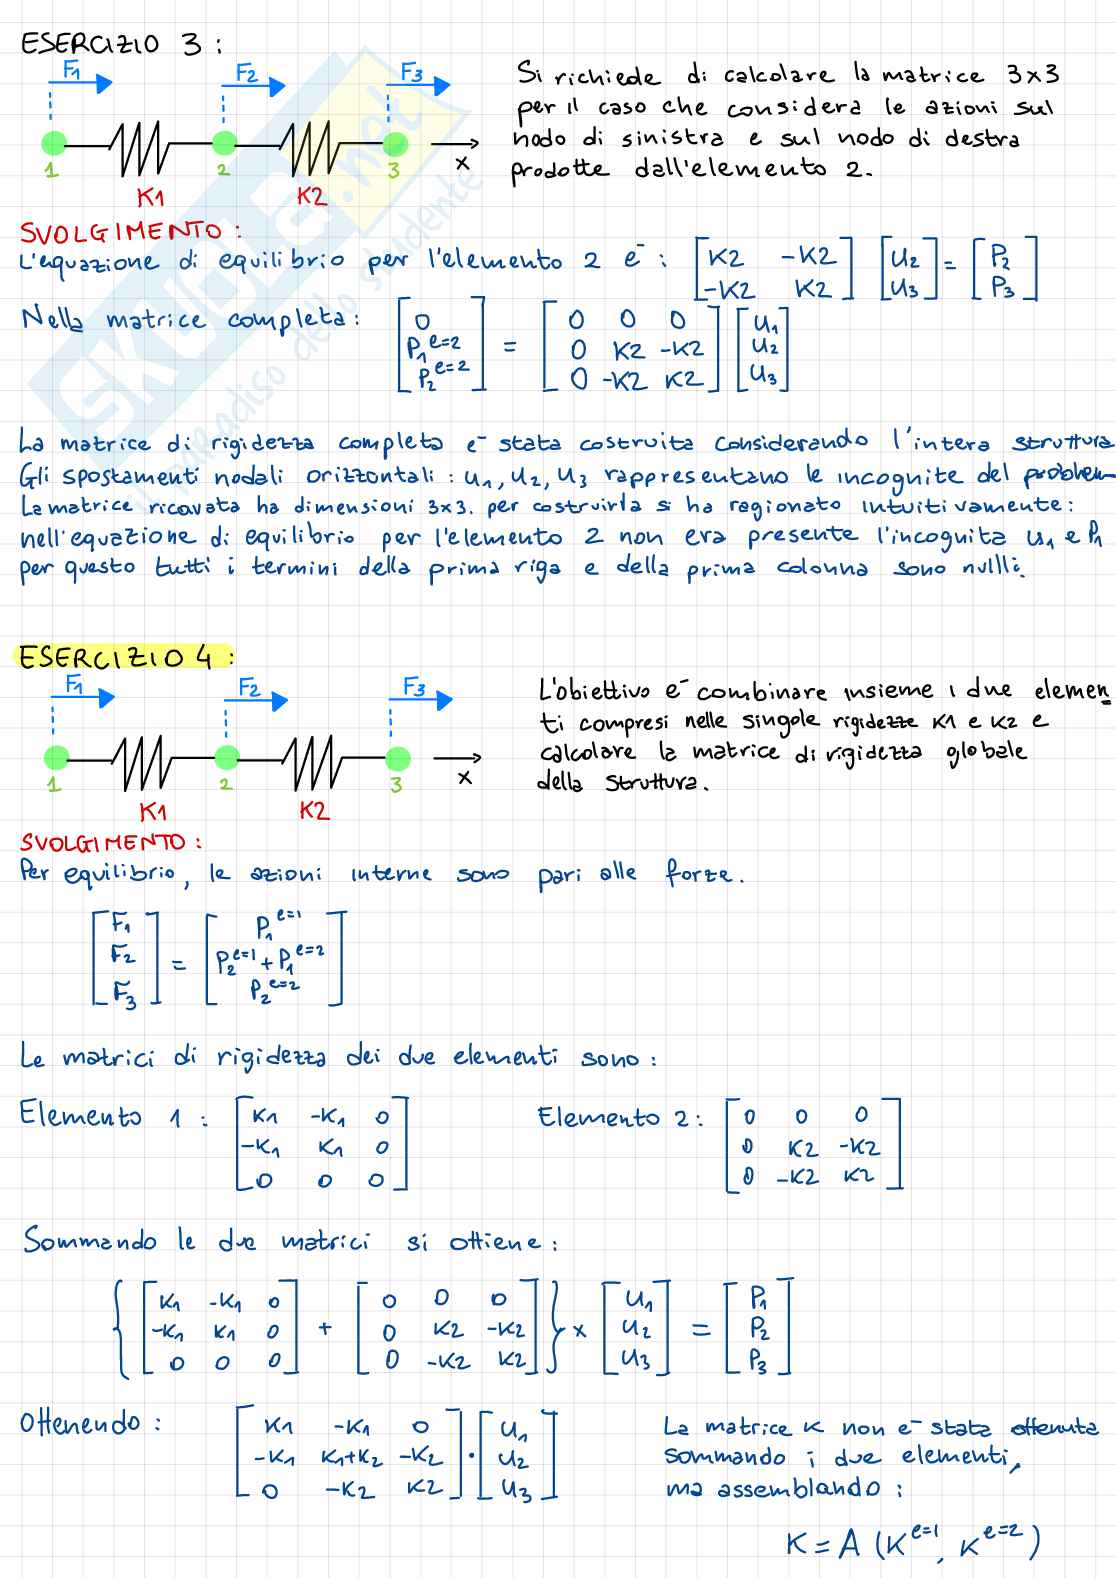 ESERCIZIO 3 :
F1 F2 F3
1 2 3 x
K1 K2
Si richiede di calcolare la matrice 3x3
per il caso che considera le azioni sul
nodo di sinistra e sul nodo di destra
prodotte dall'elemento 2.
SVOLGIMENTO :
L'equazione di equilibrio per l'elemento 2 è : [K2 -K2] [u2] = [P2]
[-K2 K2] [u3] [P3]
Nella matrice completa : [0] [0 0 0] [u1]
[P1^e=2] = [0 K2 -K2] [u2]
[P2^e=2] [0 -K2 K2] [u3]
La matrice di rigidezza completa è stata costruita considerando l'intera struttura
Gli spostamenti nodali orizzontali : u1, u2, u3 rappresentano le incognite del problem
La matrice ricavata ha dimensioni 3x3. per costruirla si ha ragionato intuitivamente :
nell'equazione di equilibrio per l'elemento 2 non era presente l'incognita u1 e P1
per questo tutti i termini della prima riga e della prima colonna sono nullli.
ESERCIZIO 4 :
F1 F2 F3
1 2 3 x
K1 K2
L'obiettivo è combinare insieme i due elemen
ti compresi nelle singole rigidezze K1 e K2 e
calcolare la matrice di rigidezza globale
della struttura.
SVOLGIMENTO :
Per equilibrio, le azioni interne sono pari alle forze.
[F1] [P1^e=1]
[F2] = [P2^e=1 + P1^e=2]
[F3] [P2^e=2]
Le matrici di rigidezza dei due elementi sono :
Elemento 1 : [K1 -K1 0]
[-K1 K1 0]
[0 0 0]
Elemento 2 : [0 0 0]
[0 K2 -K2]
[0 -K2 K2]
Sommando le due matrici si ottiene :
{[K1 -K1 0] [0 0 0]} [u1] [P1]
{[-K1 K1 0] + [0 K2 -K2]} x [u2] = [P2]
{[0 0 0] [0 -K2 K2]} [u3] [P3]
Ottenendo : [K1 -K1 0] [u1]
[-K1 K1+K2 -K2] · [u2]
[0 -K2 K2] [u3]
La matrice K non è stata ottenuta
sommando i due elementi,
ma assemblando :
K = A (K^e=1, K^e=2)
SKUOLA.net
il paradiso dello studente